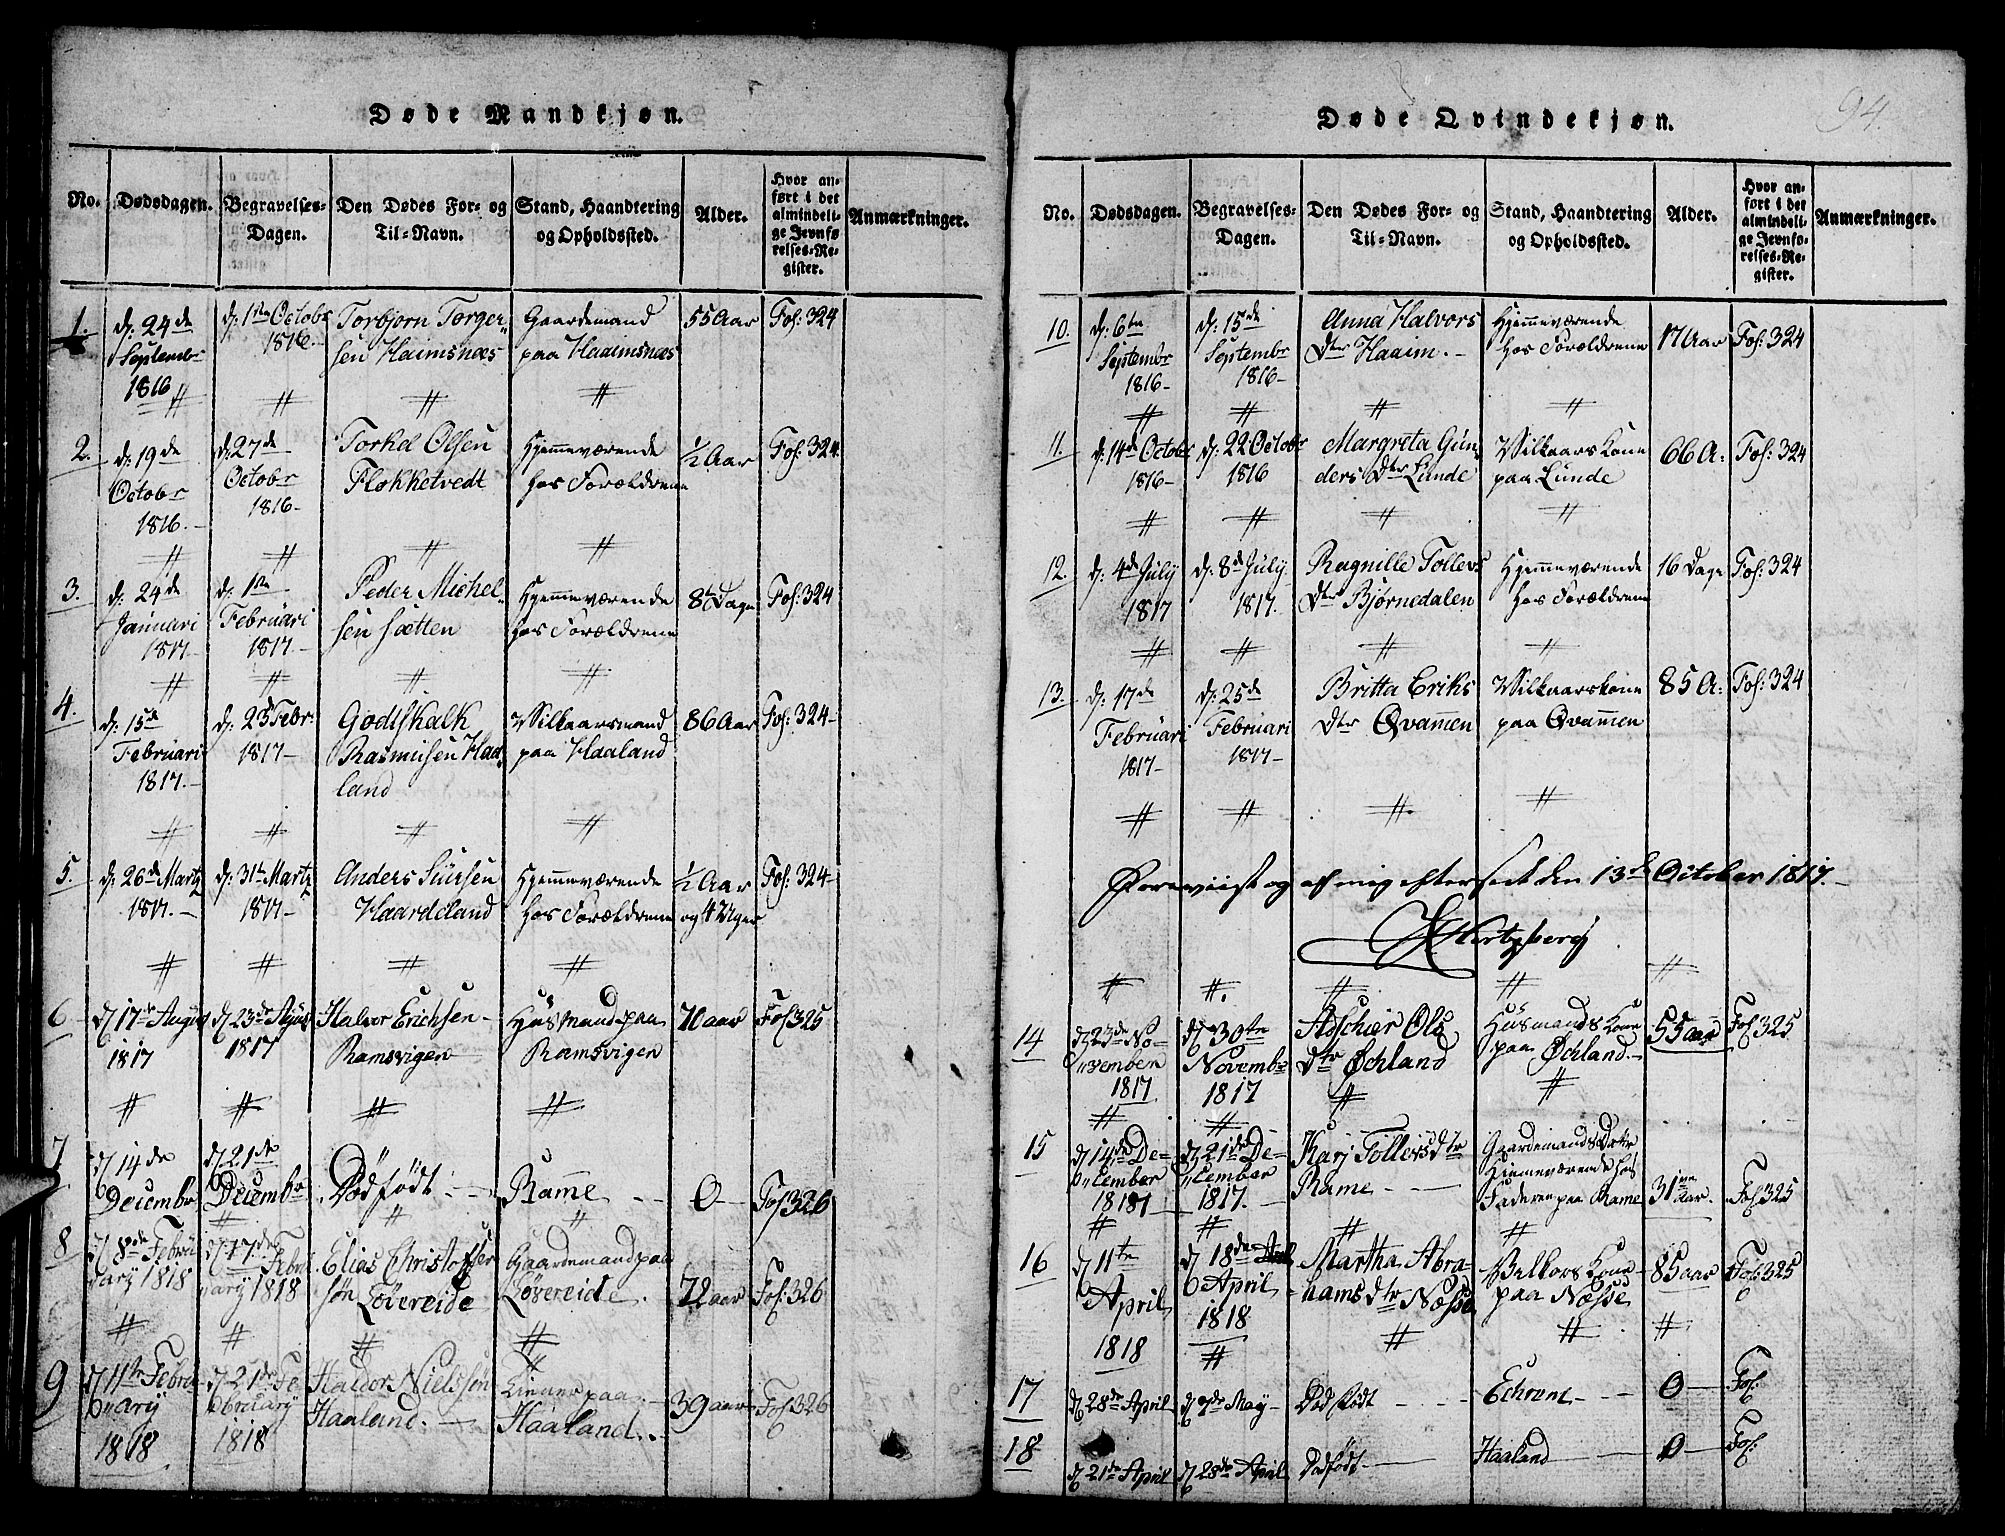 Døde Mandkjøn.
No.
Dødsdagen.
Begravelses-
Dagen.
Den Dødes For- og
Til-Navn.
Stand, Haandtering
og Opholdssted.
Alder.
Hvor an-
ført i det
almindeli-
ge Jevnfø-
relses-Re-
gister.
Anmærkninger.
1.
d: 24de
Septembr
1816
d: 1ste Octobr
1816.
Torbjørn Torger-
sen Haimsnæs
Gaardemand
paa Haaimsnæs
55 Aar
Fol: 324
2.
d: 19de
Octobr
1816.
d: 27de
Octobr
1816-
Torkel Olsen
Flokketvedt
Hjemmeværende
hos Forældrene
1/2 Aar
Fol: 324
3.
d: 24de
Januari
1817.
d: 1ste
Februari
1817.
Peder Michel-
sen Sætten
Hjemmeværende
hos Forældrene
8te Dage
Fol: 324
4.
d: 15de
Februari
1817.
d: 23 Febr:
1817-
Godtskalk
Rasmusen Haa-
land
Wilkaarsmand
paa Haaland
86 Aar
Fol: 324-
5.
d: 26de Martz
1817.-
d: 31te Martz
1817-
Anders Siursen
Haardeland
Hjemmeværende
hos Forældrene
1/2 Aar
og 4 Uger
Fol: 324-
6
d 17de August
1817
d 23de August
1817
Halvor Erichsen
Ramsvigen
Husmand paa
Ramsvigen
70 aar
Fol 325
7
d 14de
Decembr
d 21de
Decembr
Dødfödt
Rame
0
Fol 326
8
d 8de Febru
ary 1818
d 17de Febr
ary 1818
Elias Christoffer
søn Løvereide
Gaardemand paa
Løvereide
72 aar
Fol: 326
9
d 11te Febru
ary
1818
d 21de Fe
bruary
1818
Haldor Nielssøn
Haaland.
paa
Haaland.
39 aar
Fol 326
Døde Qvindekjøn.
94.
No.
Dødsdagen.
Begravelses-
Dagen.
Den Dødes For- og
Til-Navn.
Stand, Haandtering
og Opholdssted.
Alder.
Hvor an-
ført i det
almindeli-
ge Jevnfø-
relses-Re-
gister.
Anmærkninger.
10.
d: 6te
Septembr
1816-
d: 15de
Septembr
1816-
Anna Halvors
Dtr Haaim.-
Hjemmeværende
hos Forældrene
17 Aar
Fol: 324
11.
d: 14de Octobr
1816-
d: 22 Octobr
1816
Margreta Gun-
ders Dtr Lunde
Wilkaars Kone
paa Lunde
66 A:
Fol: 324
12.
d: 4de July
1817
d: 8de July
1817.
Ragnille Tollevs
Dtr Bjørnedalen
Hjemmeværende
hos Forældrene
16 Dage
Fol: 324
13.
d: 17de
Februari
1817-
d: 25de
Februari
1817-
Britta Eriks
Dtr Qvammen
Wilkaarskone
paa Qvammen
85 A:
Fol: 324
Foreviist og af mig efterseet den 13de October 1817.-
Hertzberg
14
d 23de No-
vember
1817.
d 30te
Novembr
1817
Ols
Dtr Øchland
Husmands Kone
paa Øchland.
55 aar
Fol 325
15
d 14de De-
cember
18181
d 21de De-
cember
1817.
Karj Tollevs dtr
Rame
Gaardemands Dotter
Hiemeværende hos
Faderen paa Rame
31 aar.
Fol 325
16
d 11te
April
1818
d 18de
April
1818
Martha Abra
hams dtr Næsse
Velkors Kone
paa Næsse
85 aar
Fol 325
17
d 28de April
d 7de May
Dødfödt
Echrene
0
Fol:
18
d 21de April
d 28de April
Dødfödt
Haaland
0
Fol: